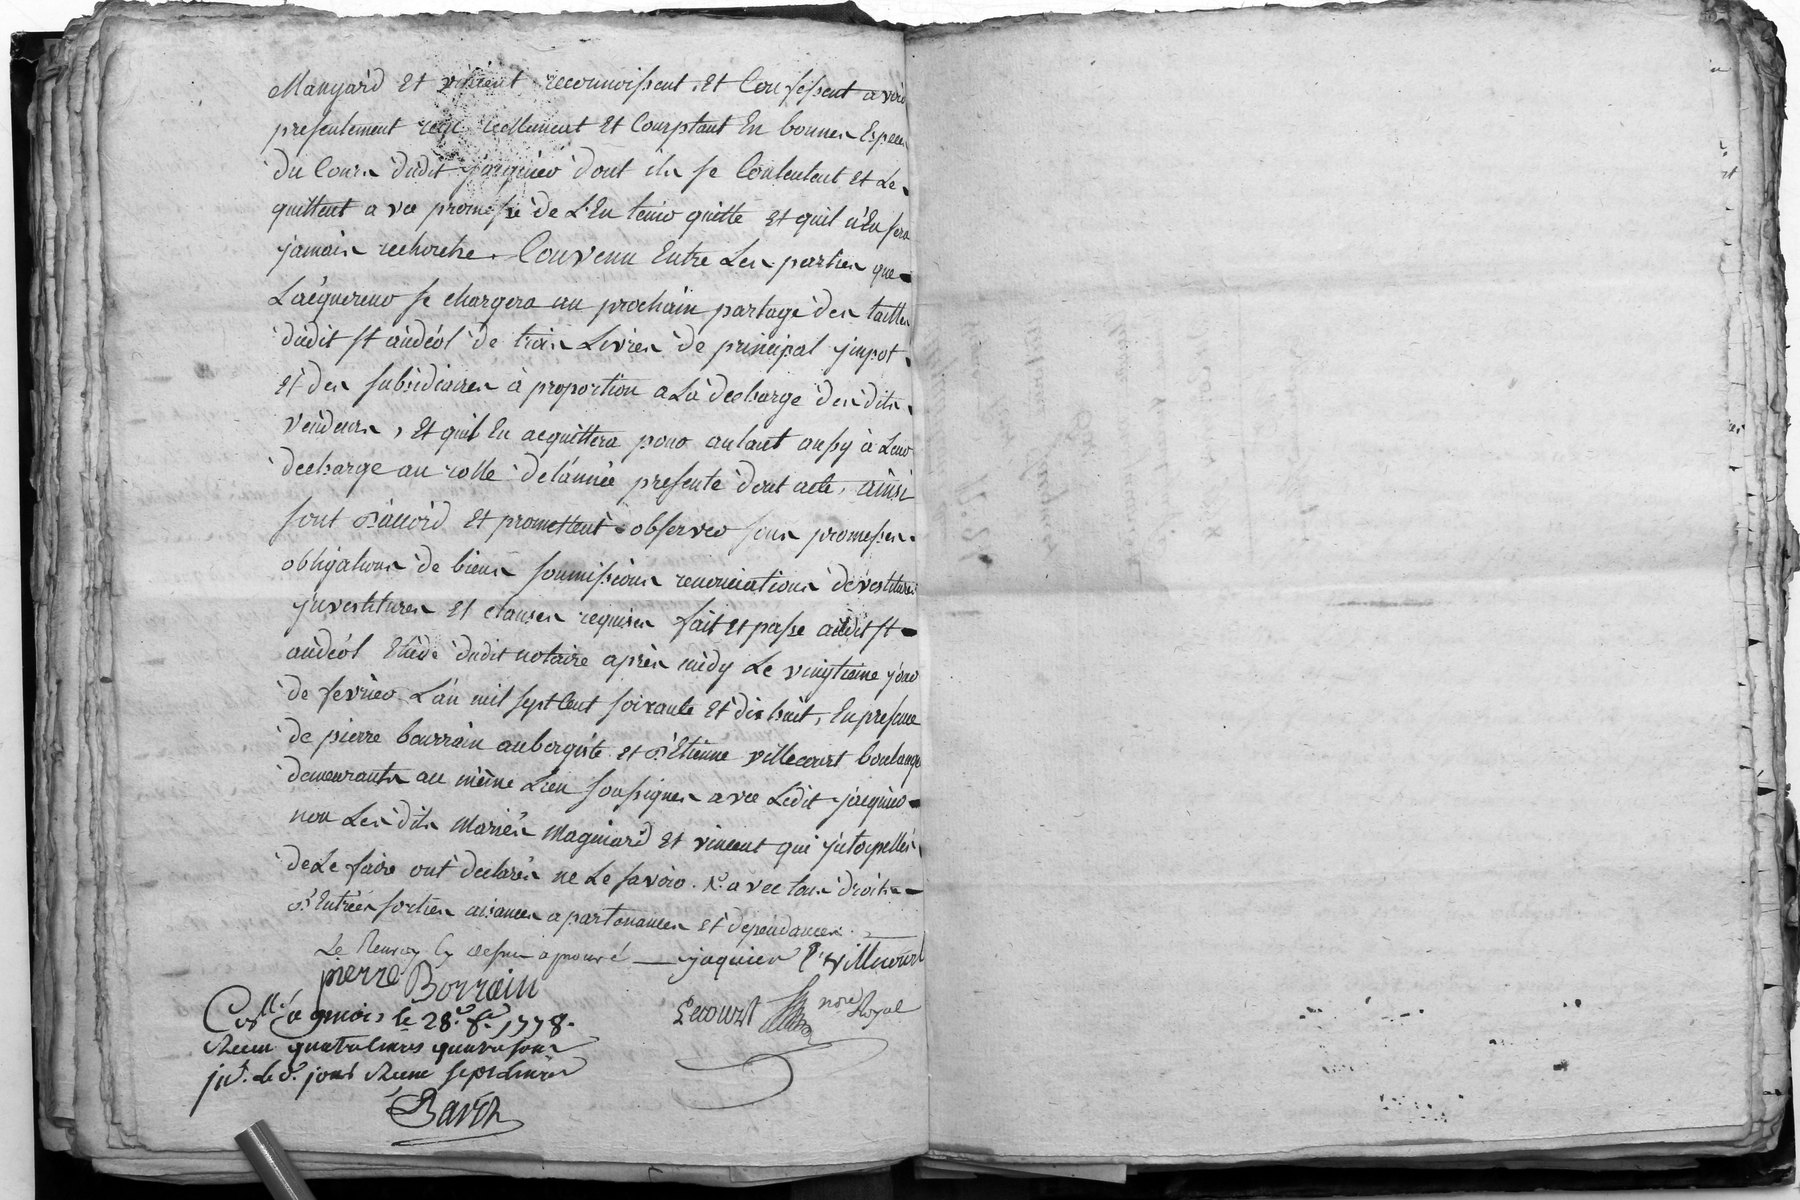 Manyard et vincent reconnoissent et Confessent avoir
presentement reçu reellement et Comptant En bonnes Especes
du Cours dudit jacquier dont ils se Contentent et Le
quittent avec promesse de L'En tenir quitte et quil n'En sera
jamais recherche. Convenu Entre Les parties que
L'acquereur se chargera au prochain partage des tailles
dudit st andéol de trois Livres de principal jmpot
et des subsidiaires à proportion a La decharge desdits
vendeurs, et quil En acquittera pour autant aussy à Leur
decharge au rolle de l'année presente dont acte, ainsi
sont d'accord et promettent observer sous promesses
obligations de biens soumissions renonciations devestitures
jnvestitures et clauses requises fait et passe audit st
andéol Etude dudit notaire après midy Le vingtieme jour
de fevrier L'an mil sept Cent soixante et dix huit, En presence
de pierre bourrain aubergiste et d'Etienne villecourt boulanger
demeurants au même Lieu soussignes avec Ledit jacquier
non Les dits mariés magniard et vincent qui jnterpellés
de Le faire ont declarés ne Le savoir. avec tous droits
d'Entrées sorties aisances apartenances et dependances
Le Renvoy cy dessus aprouvé jaquier E. villecourt
pierre Borrain
Lecourt nore Royal
le 28e fer 1778.
Reçu quatre livres quatre sous
jnt. led. jour Reçu sept livres